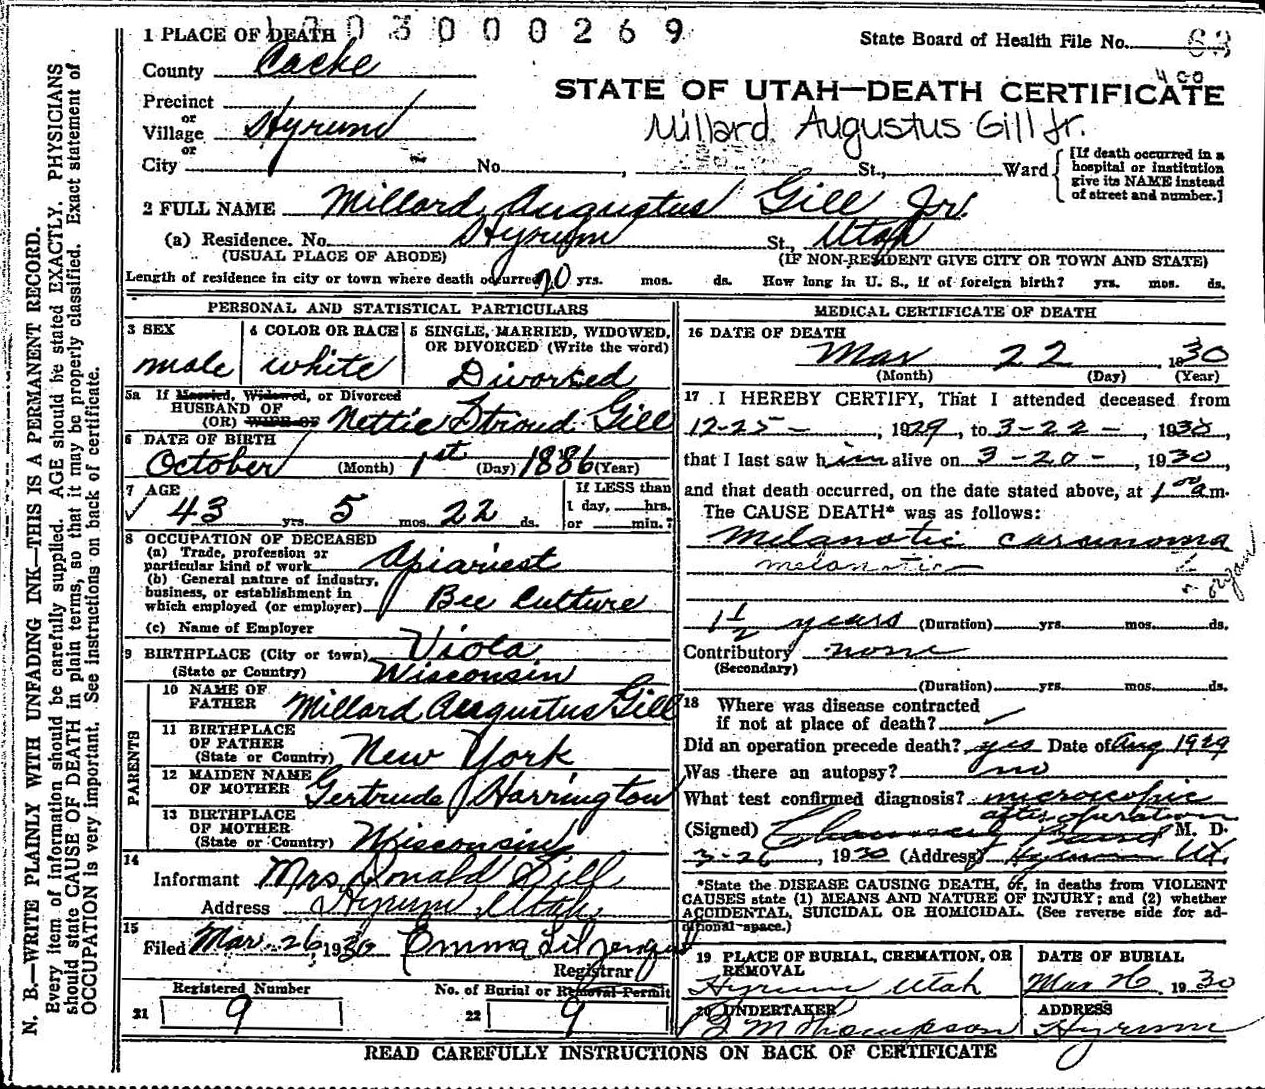 1 PLACE OF DEATH 1 0 0 3 0 0 0 0 2 6 9
State Board of Health File No. 63
County Cache
400
STATE OF UTAH—DEATH CERTIFICATE
Precinct
or
Village Hyrum
Millard Augustus Gill Jr.
or
City No. , St., Ward
[If death occurred in a
hospital or institution
give its NAME instead
of street and number.]
2 FULL NAME Millard Augustus Gill Jr.
(a) Residence. No. Hyrum St., Utah
(USUAL PLACE OF ABODE) (IF NON-RESIDENT GIVE CITY OR TOWN AND STATE)
Length of residence in city or town where death occurred 20 yrs. mos. ds. How long in U. S., if of foreign birth? yrs. mos. ds.
PERSONAL AND STATISTICAL PARTICULARS
3 SEX 4 COLOR OR RACE 5 SINGLE, MARRIED, WIDOWED,
OR DIVORCED (Write the word)
male white Divorced
5a If Married, Widowed, or Divorced
HUSBAND OF
(OR) WIFE OF Nettie Stroud Gill
6 DATE OF BIRTH
October (Month) 1st (Day) 1886 (Year)
7 AGE If LESS than
1 day, hrs.
43 yrs. 5 mos. 22 ds. or min.?
8 OCCUPATION OF DECEASED
(a) Trade, profession or
particular kind of work Apiariest
(b) General nature of industry,
business, or establishment in
which employed (or employer) Bee Culture
(c) Name of Employer
9 BIRTHPLACE (City or town) Viola
(State or Country) Wisconsin
PARENTS
10 NAME OF
FATHER Millard Augustus Gill
11 BIRTHPLACE
OF FATHER
(State or Country) New York
12 MAIDEN NAME
OF MOTHER Gertrude Harrington
13 BIRTHPLACE
OF MOTHER
(State or Country) Wisconsin
14
Informant Mrs Donald Gill
Address Hyrum Utah
15
Filed Mar. 26, 1930 Emma
Registrar
Registered Number No. of Burial or Removal Permit
21 9 22 9
MEDICAL CERTIFICATE OF DEATH
16 DATE OF DEATH
Mar 22 1930
(Month) (Day) (Year)
17 I HEREBY CERTIFY, That I attended deceased from
12-25-, 1929, to 3-22-, 1930,
that I last saw him alive on 3-20-, 1930,
and that death occurred, on the date stated above, at 1 00 a m.
The CAUSE DEATH* was as follows:
Melanotic carcinoma
melanotic
organ
1 1/2 years (Duration) yrs. mos. ds.
Contributory none
(Secondary)
(Duration) yrs. mos. ds.
18 Where was disease contracted
if not at place of death?
Did an operation precede death? yes Date of Aug 1929
Was there an autopsy? no
What test confirmed diagnosis? microscopic
after operation
(Signed) M. D.
3-26, 1930 (Address) Hyrum Ut.
*State the DISEASE CAUSING DEATH, or, in deaths from VIOLENT
CAUSES state (1) MEANS AND NATURE OF INJURY; and (2) whether
ACCIDENTAL, SUICIDAL OR HOMICIDAL. (See reverse side for ad-
ditional space.)
19 PLACE OF BURIAL, CREMATION, OR
REMOVAL
Hyrum Utah
DATE OF BURIAL
Mar 26, 1930
20 UNDERTAKER
Thompson
ADDRESS
Hyrum
READ CAREFULLY INSTRUCTIONS ON BACK OF CERTIFICATE
N. B.—WRITE PLAINLY WITH UNFADING INK—THIS IS A PERMANENT RECORD.
Every item of information should be carefully supplied. AGE should be stated EXACTLY. PHYSICIANS
should state CAUSE OF DEATH in plain terms, so that it may be properly classified. Exact statement of
OCCUPATION is very important. See instructions on back of certificate.